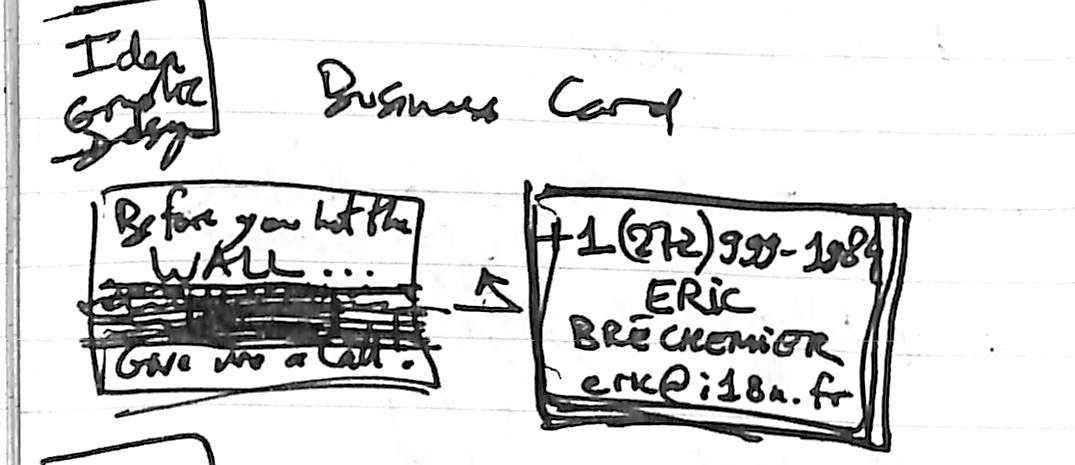 Idea
Graphic
Design
Business Card
Before you hit the
WALL...
Give me a call.
+1 (272) 999-1984
ERiC
BRÉCHEMiER
eric@i18n.fr